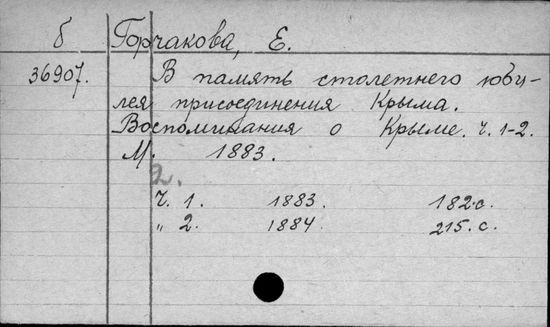 б Горчакова, Е.
36907. В память столетнего юби-
лея присоединения Крыма.
Воспоминания о Крыме. Ч. 1-2.
М. 1883.
2.
Ч. 1. 1883. 182 с.
„ 2. 1884. 215. с.